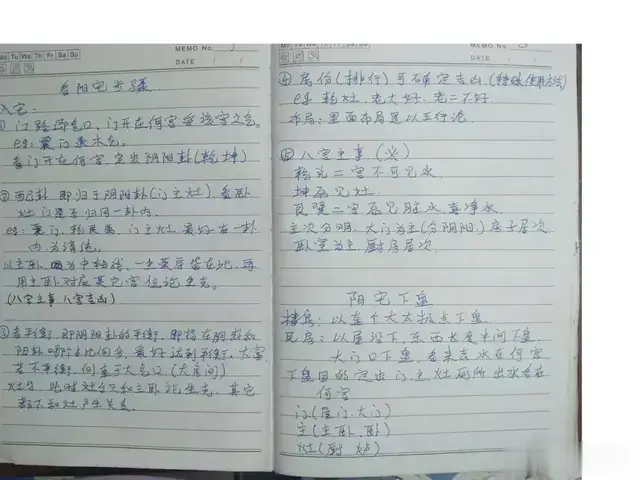 Mo Tu We Th Fr Sa Su
MEMO No.
DATE / /
看阳宅步骤
入宅:
① 门路即气口,门开在何宫受该宫之气。
eg: 震门系木气。
看门开在何宫 定出阴阳卦(乾坤)
② 即归于阴阳卦(门主灶)看卧
灶门是否归同一卦内。
门主灶 最好在一卦
内为清纯。
以主卧 为中轴线
用主卧对应其它宫位论生克。
(八宫主事 八宫吉凶)
③ 看平衡 即阴阳卦的平衡 即指在阴卦和
阳卦哪个占比何多 最好达到平衡
若不平衡 何 大气口(大房间)
灶台 此时灶台只和主卧论生克 其它
都不和灶产生关系
MEMO No.
DATE / /
④ 房份(排行)可确定吉凶(特殊使用方法)
eg 乾灶 老大好 老二不好
布局: 里面布局是以五行论
⑤ 八宫主事(义)
乾兑二宫不可见水
坤忌见灶
艮巽二宫忌见脏水 喜净水
主次分明 大门为主(分阴阳)房子层次
卧室为主 厨房层次
阳宅下盘
楼房: 以整个大太极点下盘
民房: 以屋 下 东西长度中间下盘
大门口下盘 看来去水在何宫
下盘目的 定出门 主 灶 厕所 出水各在
何宫
门(屋门 大门)
主(主卧 卧)
灶(厨 炉)